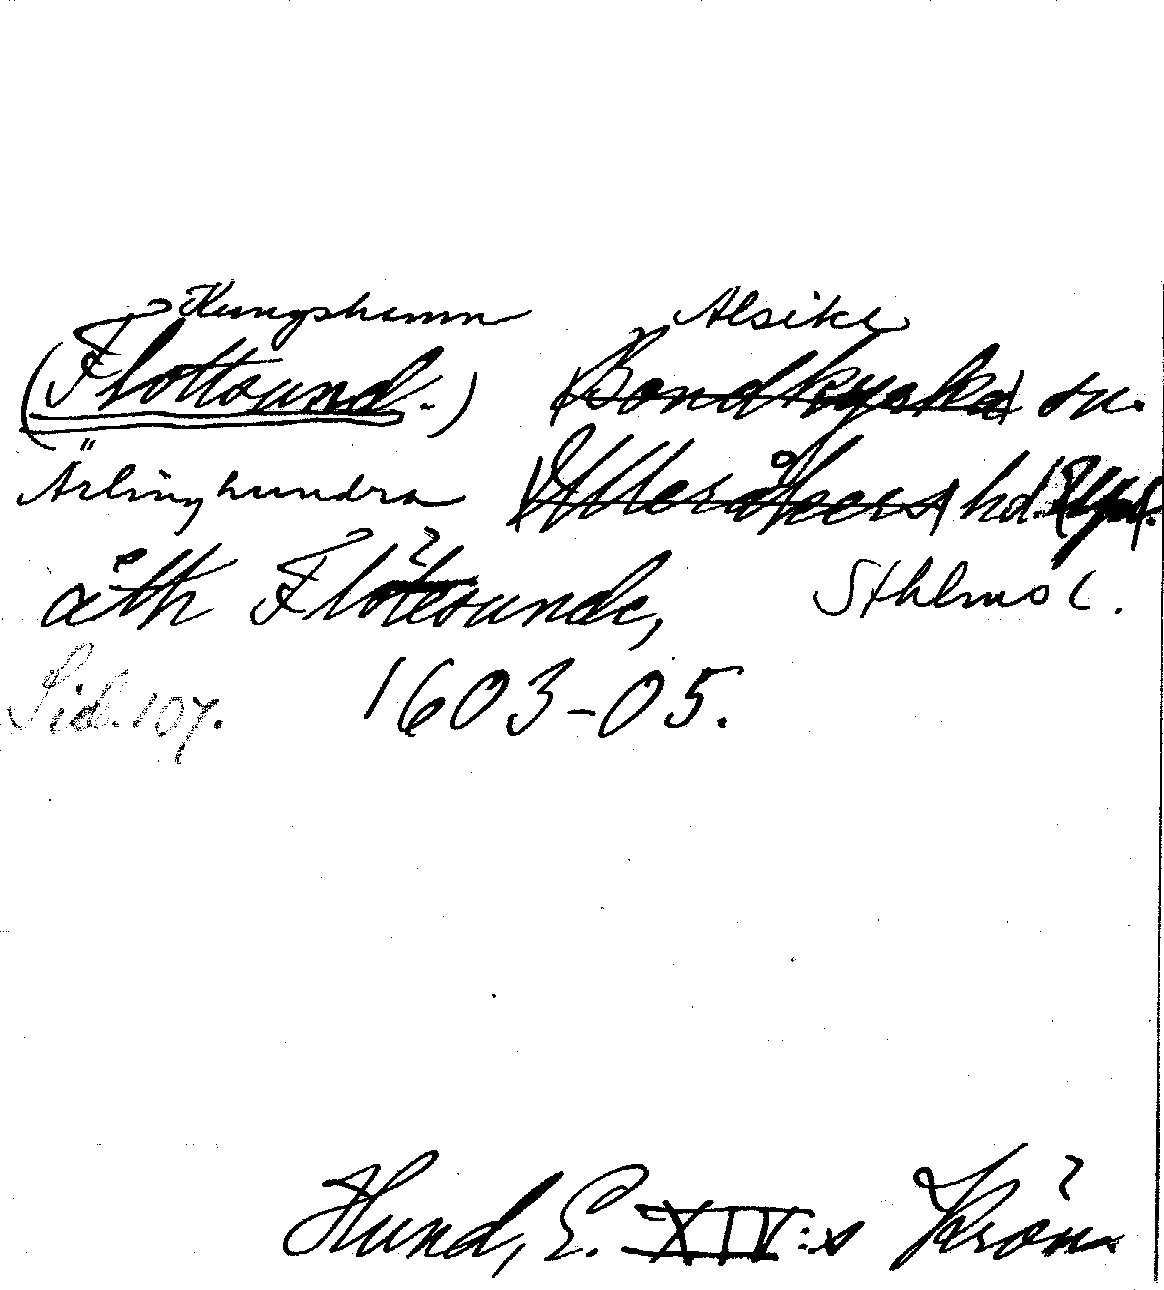 Kungshamn Alsike
(Flottsund.) (Bondkyrka) sn.
Ärlinghundra (Ulleråkers) hd. (Upl.)
åth Flötesunde, Sthlms l.
Sid. 107. 1603-05.
Hund, E. XIV:s Krön.